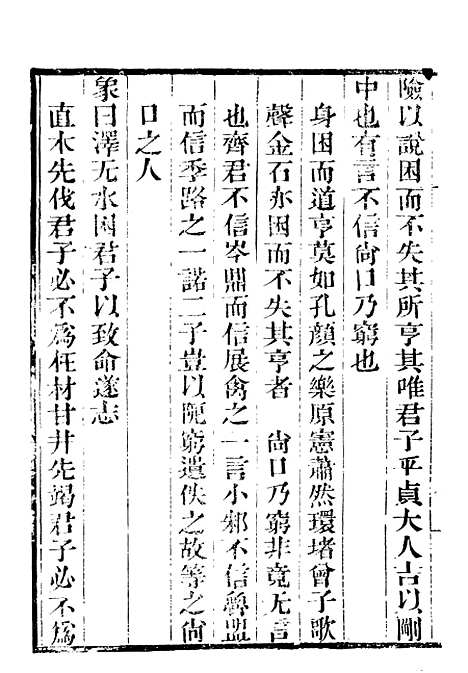 險以說困而不失其所亨其唯君子乎貞大人吉以剛
中也有言不信尙口乃窮也
身困而道亨莫如孔顏之樂原憲蕭然環堵曾子歌
聲金石亦困而不失其亨者　尙口乃窮非竟无言
也齊君不信岑鼎而信展禽之一言小邾不信魯盟
而信季路之一諾二子豈以阨窮遺佚之故等之尙
口之人
象曰澤无水困君子以致命遂志
直木先伐君子必不爲枉材甘井先竭君子必不爲